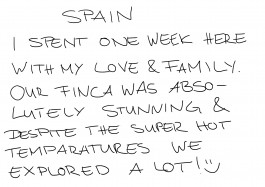 SPAIN
I SPENT ONE WEEK HERE
WITH MY LOVE & FAMILY.
OUR FINCA WAS ABSO-
LUTELY STUNNING &
DESPITE THE SUPER HOT
TEMPARATURES WE
EXPLORED A LOT!